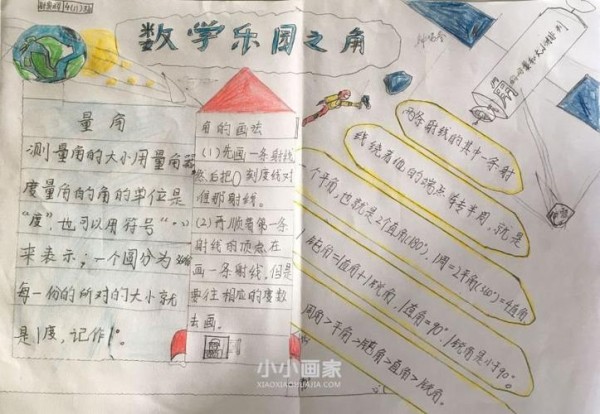 4(1)班
数学乐园之角
量角
测量角的大小用量角器
度量角的角的单位是
"度",也可以用符号"°"
来表示;一个圆分为
每一份的所对的大小就
是1度,记作1°。
角的画法
(1)先画一条射线
然后把0刻度线对
准那射线。
(2)再顺着第一条
射线的顶点在
画一条射线,但是
要往相应的度数
去画。
两条射线的其中一条射
线绕着他的端点
半周,就是
个平角,也就是2个直角(180°),1周=2平角(360°)=4直角
1钝角=1直角+1锐角,1直角=90°,1锐角是小于90°。
周角>平角>钝角>直角>锐角。
小小画家
XIAOXIAOHUAJIA.COM